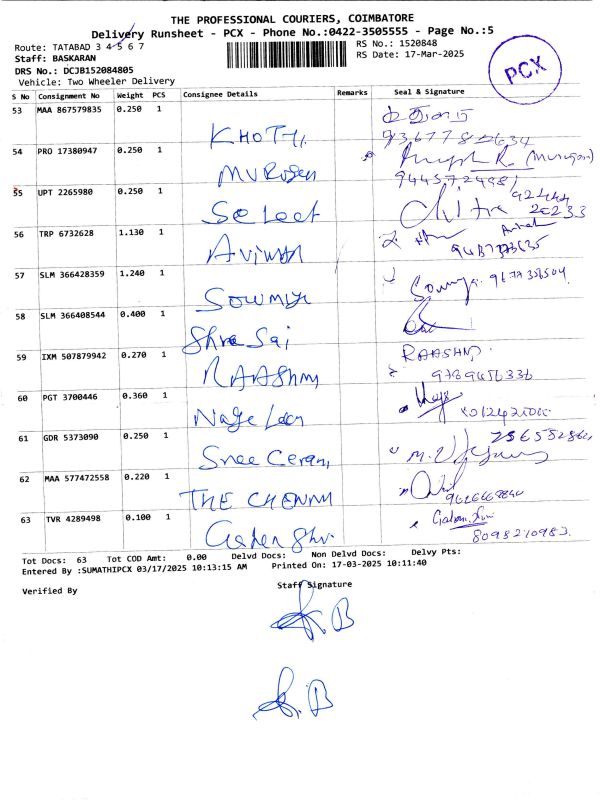 THE PROFESSIONAL COURIERS, COIMBATORE
Delivery Runsheet - PCX - Phone No.:0422-3505555 - Page No.:5
Route: TATABAD 3 4 5 6 7
RS No.: 1520848
Staff: BASKARAN
RS Date: 17-Mar-2025
DRS No.: DCJB152084805
Vehicle: Two Wheeler Delivery
PCX
S No Consignment No Weight PCS Consignee Details Remarks Seal & Signature
53 MAA 867579835 0.250 1
KHOTHI
54 PRO 17380947 0.250 1
MURUGAN (Murugan)
55 UPT 2265980 0.250 1
Select
56 TRP 6732628 1.130 1
57 SLM 366428359 1.240 1
SOWMIYA Sowmya 9677356504
58 SLM 366408544 0.400 1
Shree Sai
59 IXM 507879942 0.270 1
RAASHMI RAASHMI
9789456336
60 PGT 3700446 0.360 1
61 GDR 5373090 0.250 1
Sree Ceram,
62 MAA 577472558 0.220 1
THE CHENNAI
63 TVR 4289498 0.100 1
8098210983.
Tot Docs: 63 Tot COD Amt: 0.00 Delvd Docs: Non Delvd Docs: Delvy Pts:
Entered By :SUMATHIPCX 03/17/2025 10:13:15 AM Printed On: 17-03-2025 10:11:40
Verified By Staff Signature